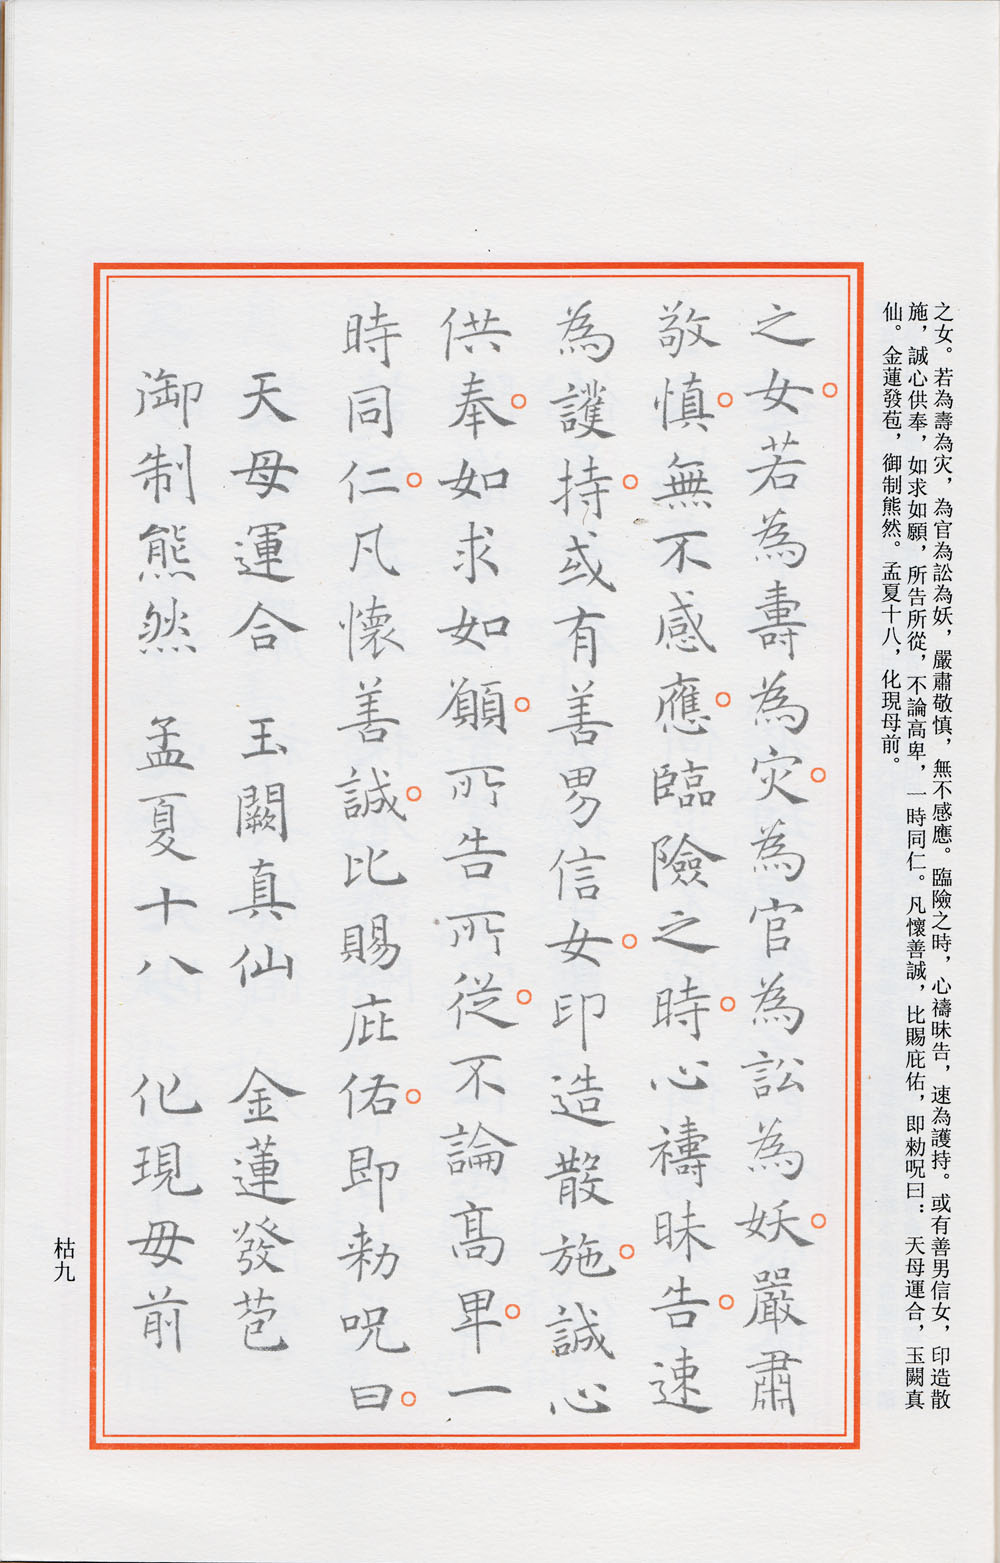 之女。若為壽為灾，為官為訟為妖，嚴肅敬慎，無不感應。臨險之時，心禱昧告，速為護持。或有善男信女，印造散
施，誠心供奉，如求如願，所告所從，不論高卑，一時同仁。凡懷善誠，比賜庇佑，即勑呪曰：天母運合，玉闕真
仙。金蓮發苞，御制熊然。孟夏十八，化現母前。
之女若為壽為灾為官為訟為妖嚴肅
敬慎無不感應臨險之時心禱昧告速
為護持或有善男信女印造散施誠心
供奉如求如願所告所從不論高卑一
時同仁凡懷善誠比賜庇佑即勑呪曰
天母運合 玉闕真仙 金蓮發苞
御制熊然 孟夏十八 化現母前
枯九